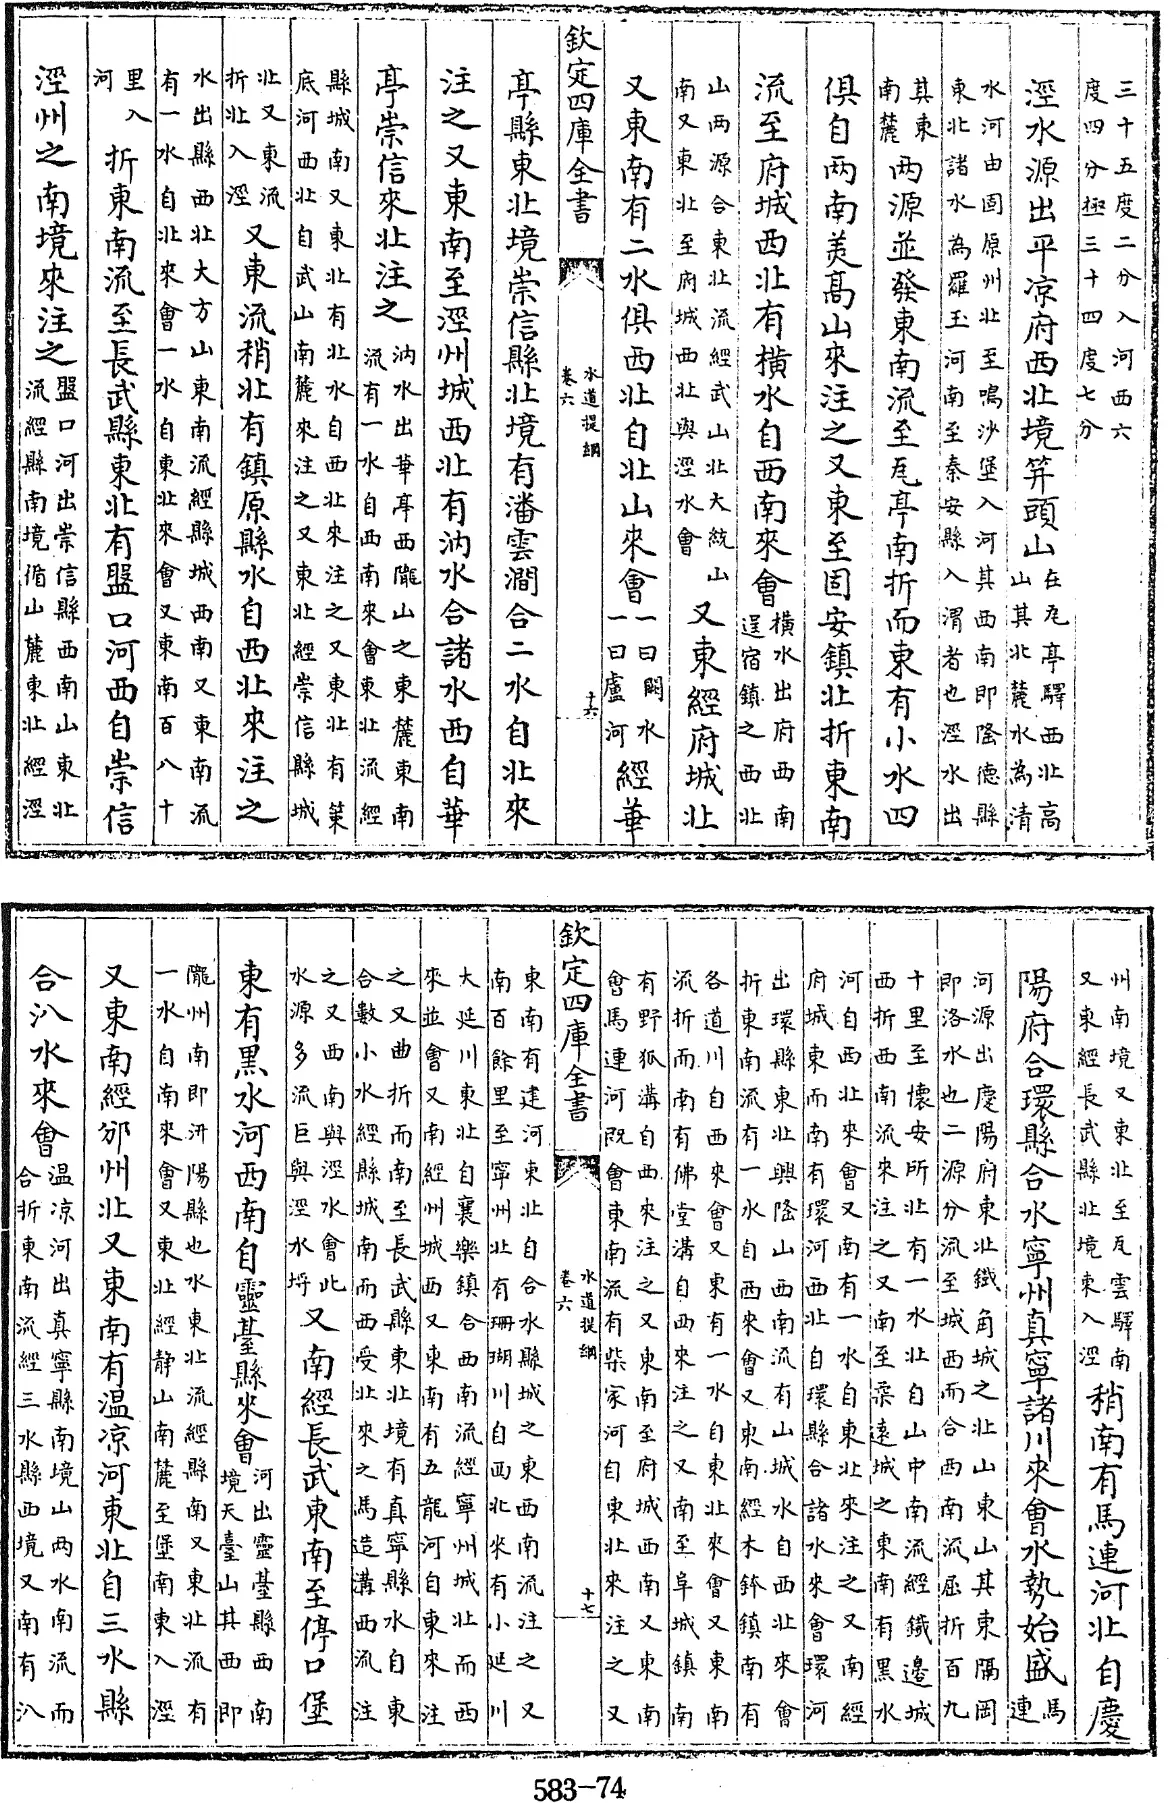 三十五度二分入河西六
度四分極三十四度七分
涇水源出平涼府西北境笄頭山在瓦亭驛西北高
山其北麓水為清
水河由固原州北至鳴沙堡入河其西南即隆德縣
東北諸水為羅玉河南至秦安縣入渭者也涇水出
其東
南麓兩源並發東南流至瓦亭南折而東有小水四
俱自兩南羙高山來注之又東至固安鎮北折東南
流至府城西北有橫水自西南來會橫水出府西南
逕宿鎮之西北
山兩源合東北流經武山北大統山
南又東北至府城西北與涇水會又東經府城北
又東南有二水俱西北自北山來會一曰閼水
一曰盧河經華
欽定四庫全書
水道提綱
卷六
十六
亭縣東北境崇信縣北境有潘雲澗合二水自北來
注之又東南至涇州城西北有汭水合諸水西自華
亭崇信來北注之汭水出華亭西隴山之東麓東南
流有一水自西南來會東北流經
縣城南又東北有北水自西北來注之又東北有策
底河西北自武山南麓來注之又東北經崇信縣城
北又東流
折北入涇又東流稍北有鎮原縣水自西北來注之
水出縣西北大方山東南流經縣城西南又東南流
有一水自北來會一水自東北來會又東南百八十
里入
河折東南流至長武縣東北有盤口河西自崇信
涇州之南境來注之盤口河出崇信縣西南山東北
流經縣南境循山麓東北經涇
州南境又東北至瓦雲驛南
又東經長武縣北境東入涇稍南有馬連河北自慶
陽府合環縣合水寧州真寧諸川來會水勢始盛馬
連
河源出慶陽府東北鐵角城之北山東山其東隔岡
即洛水也二源分流至城西而合西南流屈折百九
十里至懷安所北有一水北自山中南流經鐵邊城
西折西南流來注之又南至柔遠城之東南有黑水
河自西北來會又南有一水自東北來注之又南經
府城東而南有環河西北自環縣合諸水來會環河
出環縣東北興隆山西南流有山城水自西北來會
折東南流有一水自西來會又東南經木鉢鎮南有
各道川自西來會又東有一水自東北來會又東南
流折而南有佛堂溝自西來注之又南至阜城鎮南
有野狐溝自西來注之又東南至府城西南又東南
會馬連河既會東南流有柴家河自東北來注之又
欽定四庫全書
水道提綱
卷六
十七
東南有建河東北自合水縣城之東西南流注之又
南百餘里至寧州北有珊瑚川自西北來有小延川
大延川東北自襄樂鎮合西南流經寧州城北而西
來並會又南經州城西又東南有五龍河自東來注
之又曲折而南至長武縣東北境有真寧縣水自東
合數小水經縣城南而西受北來之馬造溝西流注
之又西南與涇水會此
水源多流巨與涇水埒又南經長武東南至停口堡
東有黑水河西南自靈臺縣來會河出靈臺縣西南
境天臺山其西即
隴州南即汧陽縣也水東北流經縣南又東北流有
一水自南來會又東北經靜山南麓至堡南東入涇
又東南經邠州北又東南有温凉河東北自三水縣
合汃水來會温凉河出真寧縣南境山兩水南流而
合折東南流經三水縣西境又南有汃
583-74